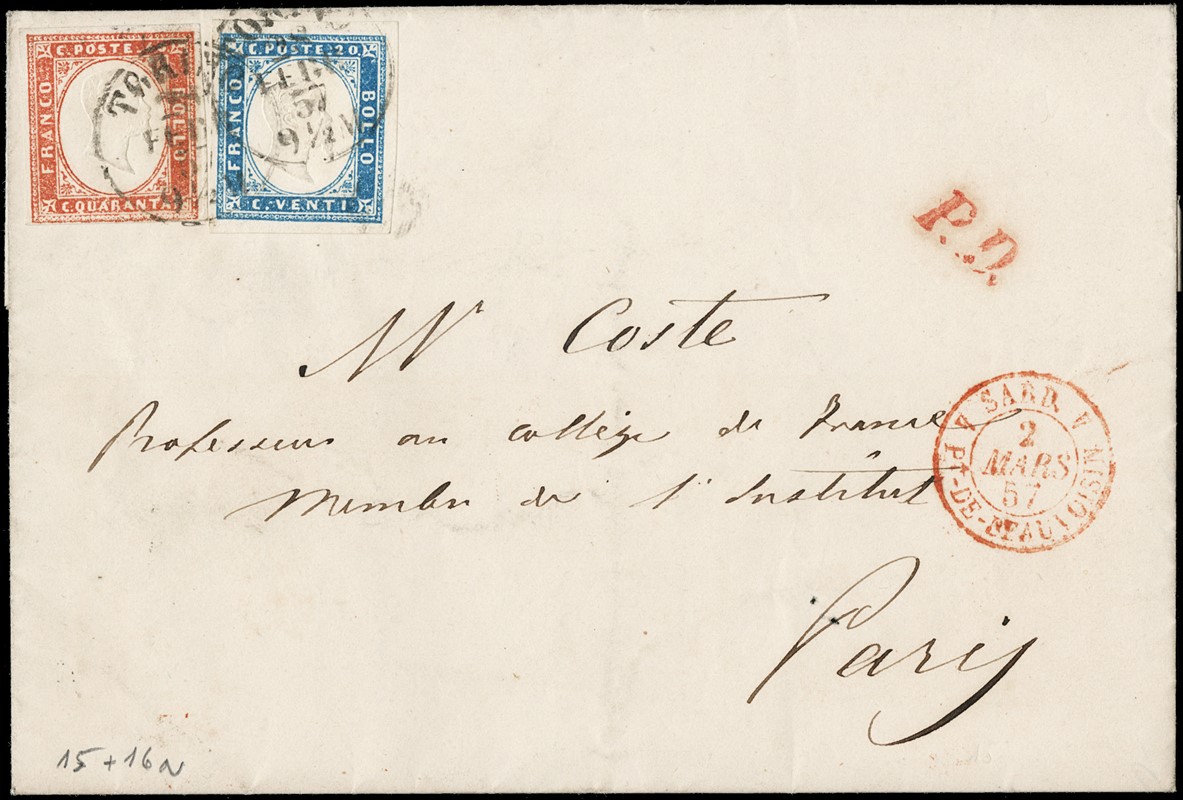 C. POSTE
FRANCO
BOLLO
C. QUARANT
C. POSTE 20
FRANCO
BOLLO
C. VENTI
FEB
57
9 1/2 M
P.D.
Mr Coste
Professeur au collège de France
Membre de l'Institut
Paris
SARD.
2
MARS
57
Pt-DE-BEAUVOISIN
15 + 16